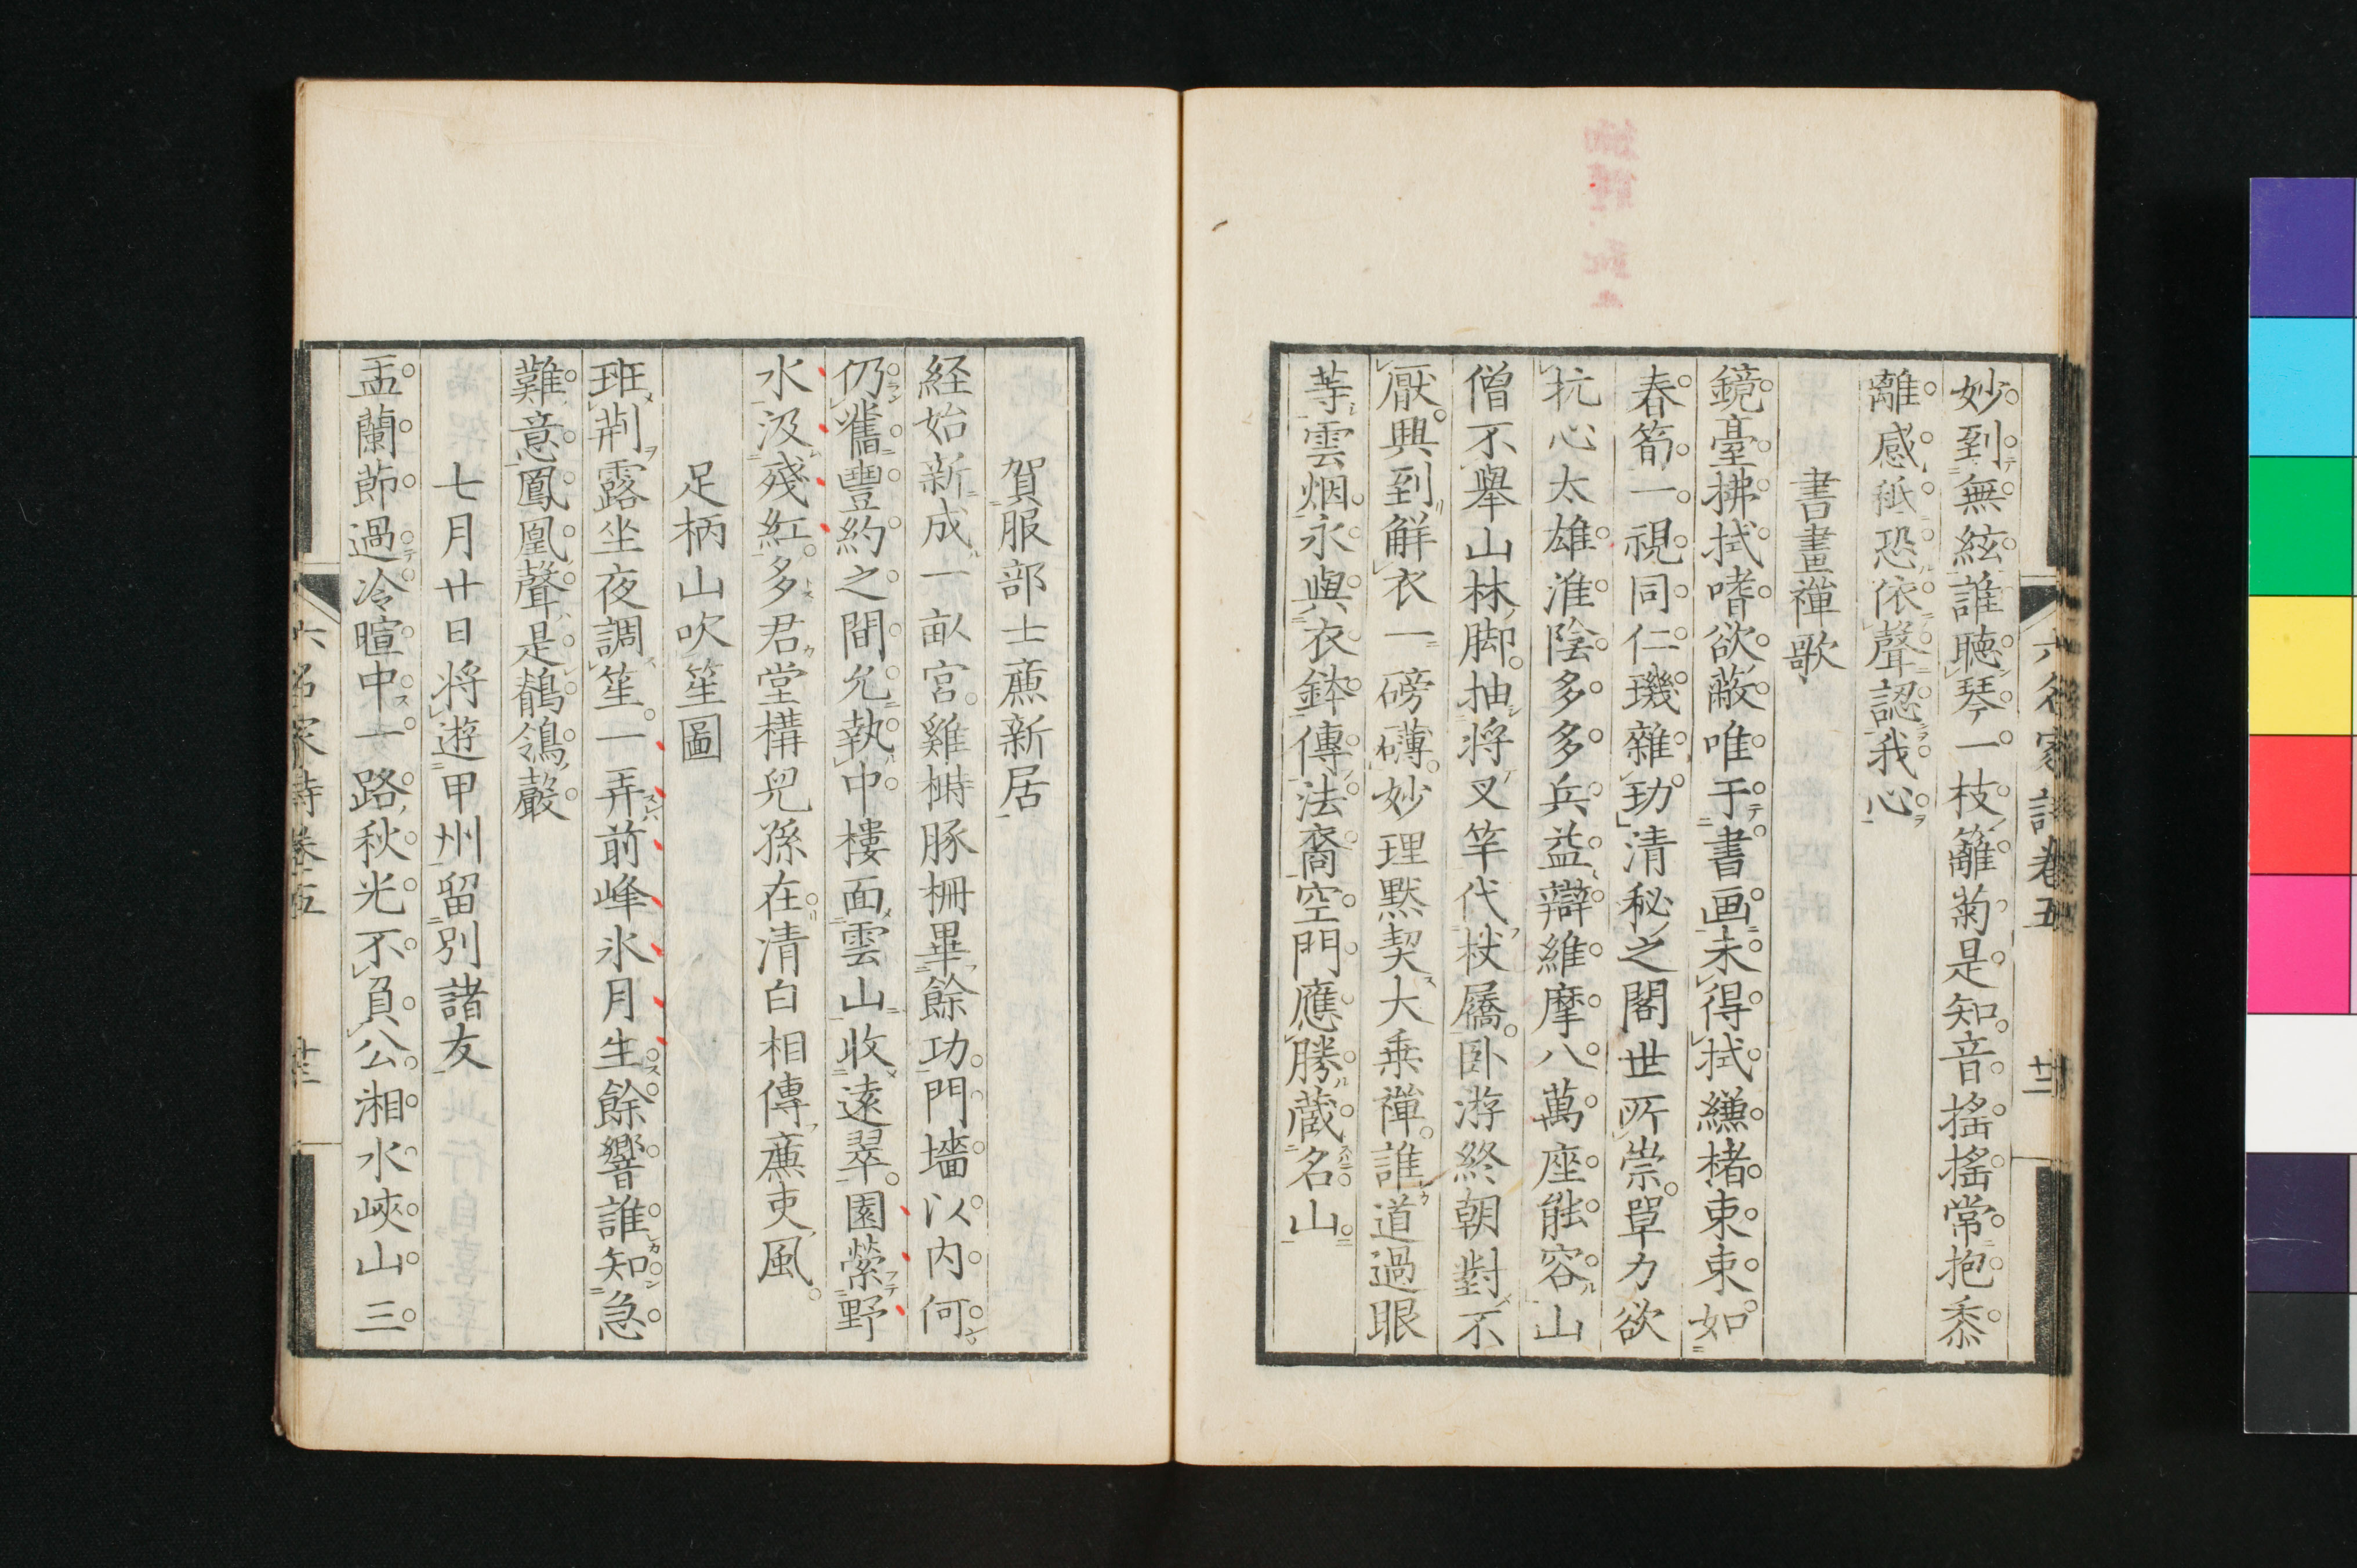 六名家詩卷五
十二
妙到無絃誰聴琴一枝籬菊是知音搖搖常抱黍
離感秖恐依聲認我心
書畫禪歌
鏡臺拂拭嗜欲蔽唯于書画未得拭縑楮束束如
春筍一視同仁璣雜玏清秘之閣世所崇單力欲
抗心太雄淮陰多多兵益辯維摩八萬座能容山
僧不舉山林脚抽将叉竿代杖屩卧游終朝對不
厭興到觧衣一磅礴妙理黙契大乗禪誰道過眼
等雲烟永與衣鉢傳法裔空門應勝蔵名山
賀服部士廉新居
経始新成一畝宮雞榯豚柵畢餘功門墻以内何
仍舊豐約之間允執中樓面雲山收遠翠園縈野
水汲殘紅多君堂構兒孫在清白相傳廉吏風
足柄山吹笙圖
班荆露坐夜調笙一弄前峰氷月生餘響誰知急
難意鳳凰聲是鶺鴒聲
七月廿日将遊甲州留別諸友
盂蘭節過冷暄中一路秋光不負公湘水峽山三
六名家詩卷五
十三